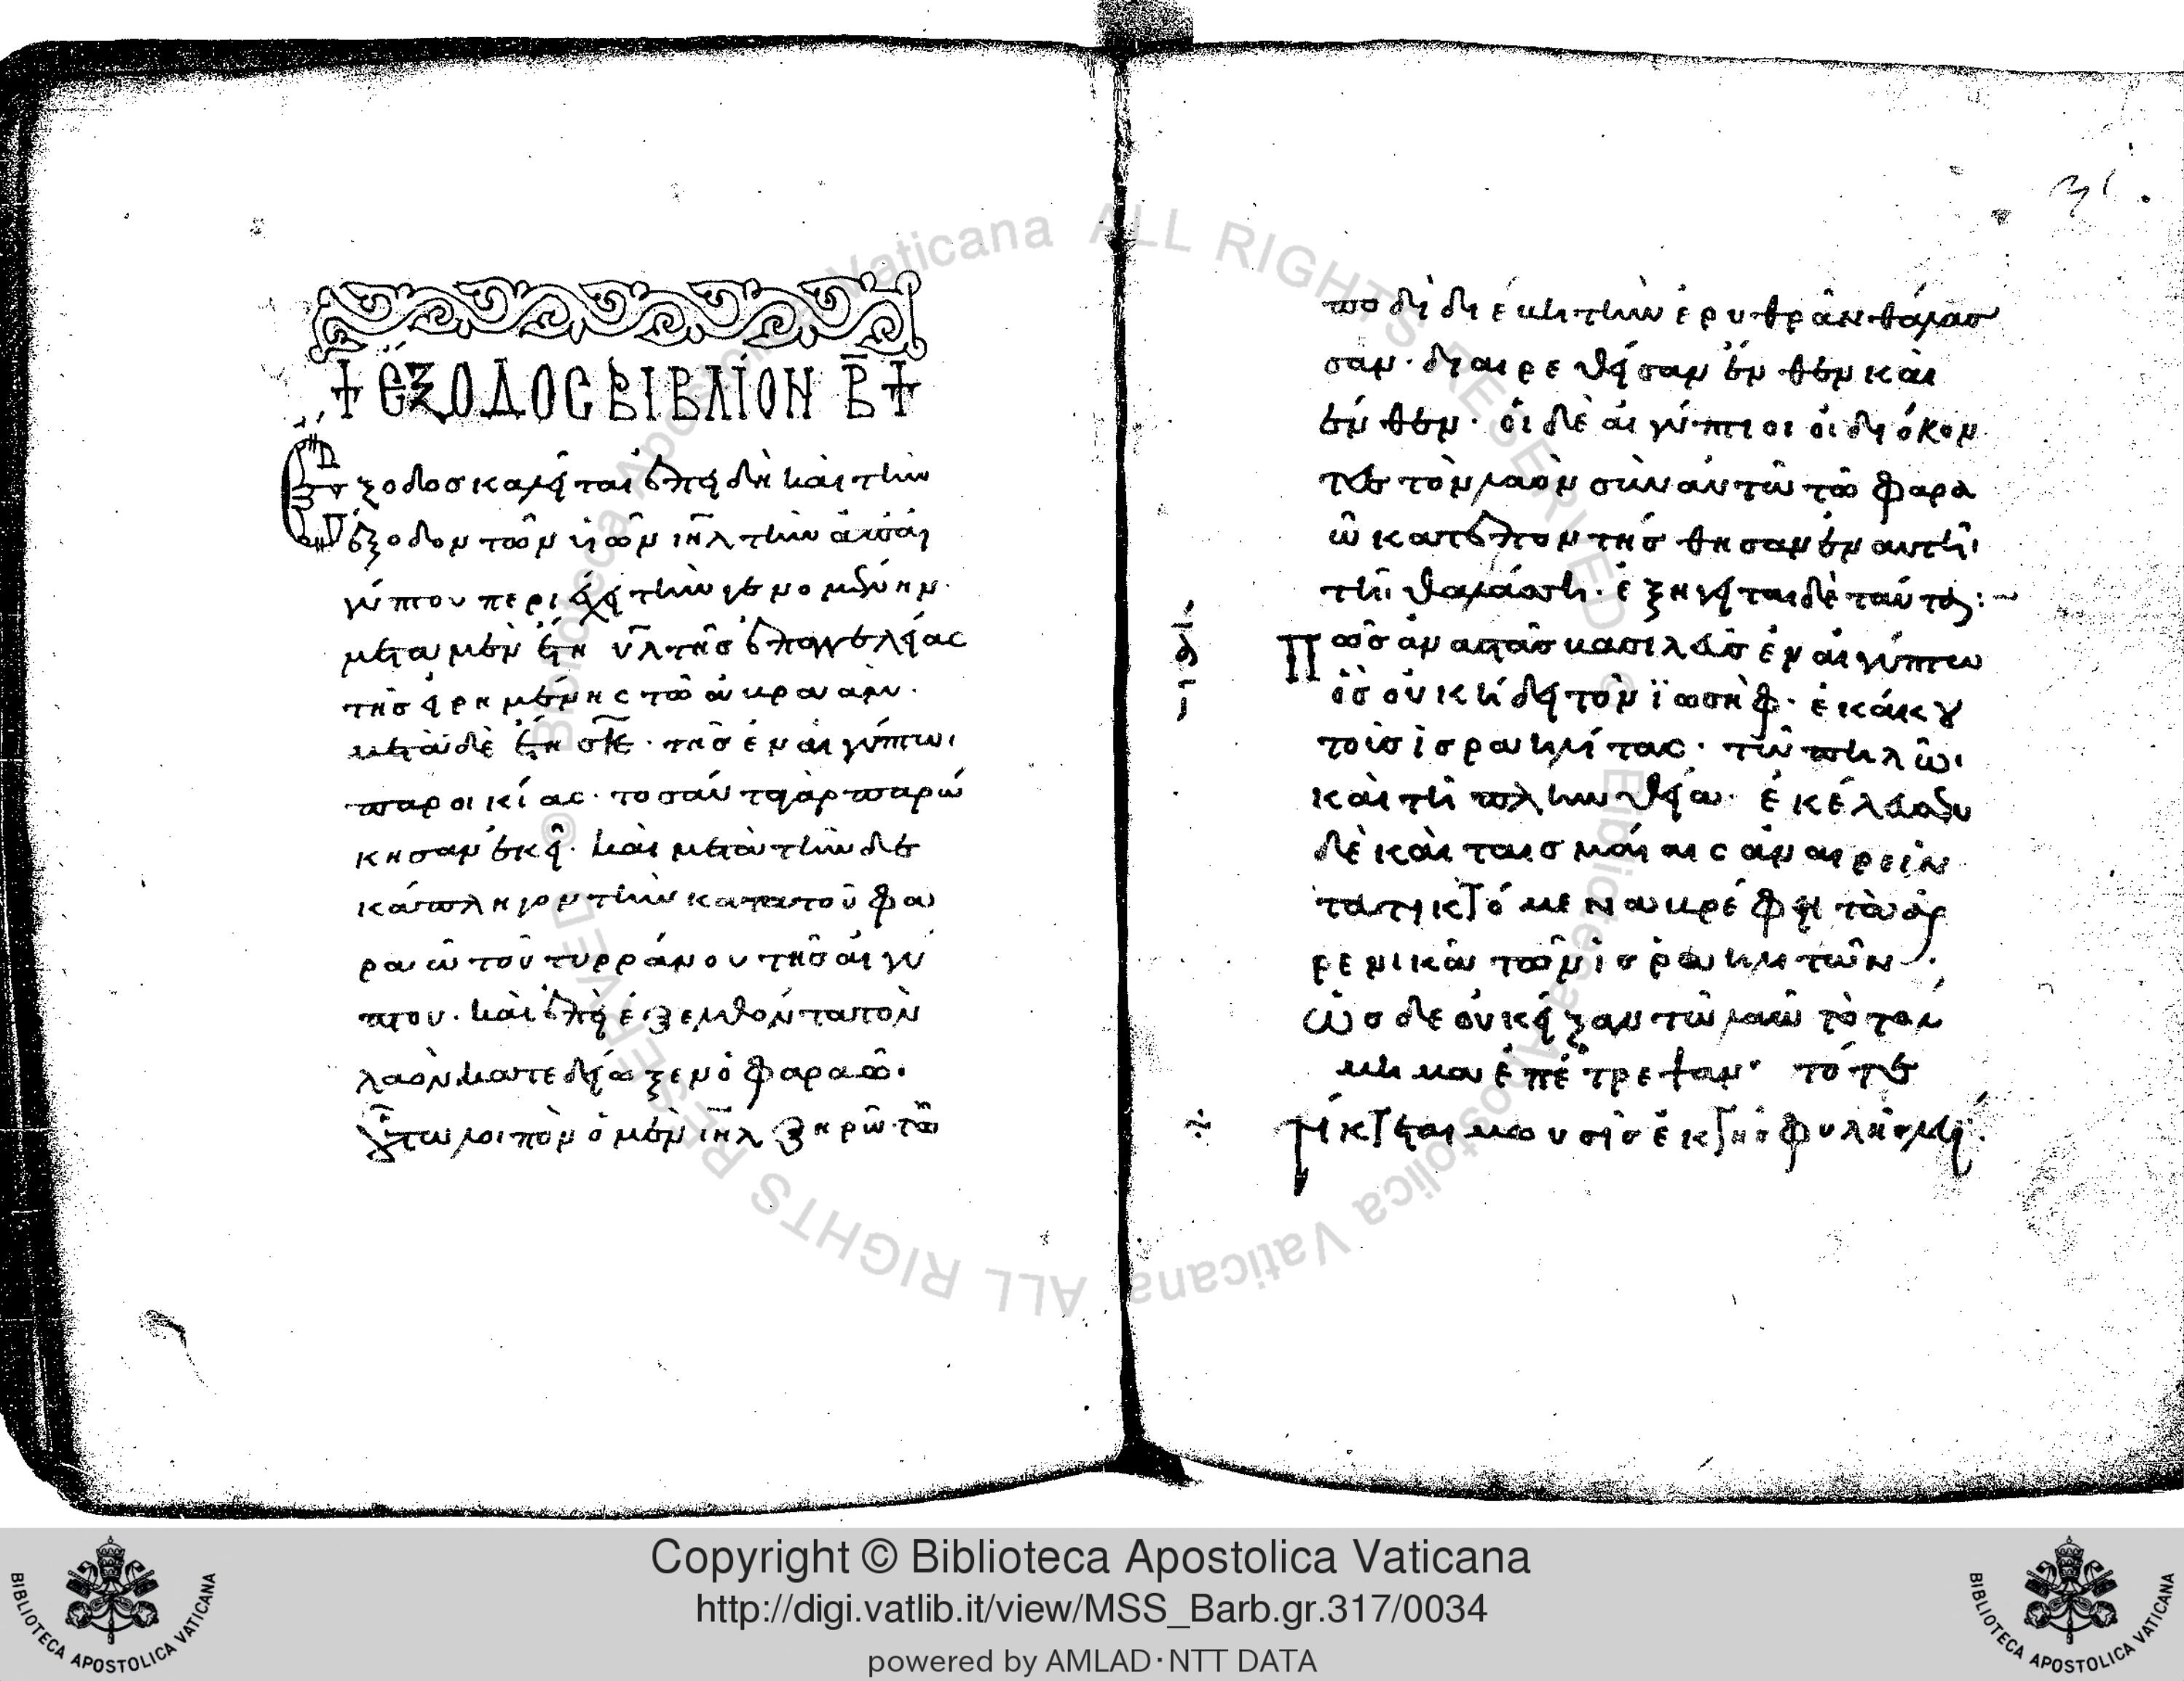 + ἘΞΟΔΟC ΒΙΒΛΊΟΝ Β̅ +
Ἔξοδος καλεῖται ἐπειδὴ καὶ τὴν
ἔξοδον τῶν υἱῶν ἰη̅λ τὴν ἀπ' αἰ
γύπτου περιέχει τὴν γενομένην·
μετὰ μὲν ἔτη υ̅λ τῆς ἐπαγγελίας
τῆς εἰρημένης τῶ ἀβραάμ·
μετὰ δὲ ἔτη σ̅ι̅ε̅· τῆς ἐν αἰγύπτωι
παροικίας· τοσαῦτα γὰρ παρώ
κησαν ἐκεῖ· καὶ μετὰ τὴν δε
κάπληγον τὴν κατὰ τοῦ φα
ραὼ τοῦ τυρράνου τῆς αἰγύ
πτου· καὶ ἐπεὶ ἐξελθόντα τὸν
λαὸν κατεδίωξεν ὁ φαραῶ·
οὕτω λοιπὸν ὁ μὲν ἰη̅λ ξηρῶ τῶ
ποδὶ διέβη τὴν ἐρυθρὰν θάλασ
σαν· διαιρεθεῖσαν ἔνθεν καὶ
ἔνθεν· οἱ δὲ αἰγύπτιοι οἱ διόκον
τες τὸν λαὸν σὺν αὐτῶ τῶ φαρα
ὼ κατεποντήσθησαν ἐν αὐτῆι
τῆ θαλάσση· ἐξηγεῖται δὲ ταῦτα:~
Πῶς ἀναστὰς βασιλεὺς ἐν αἰγύπτω
ὃς οὐκ ἤδει τὸν ἰωσὴφ· ἐκάκου
τοὺς ἰσραηλίτας· τῶ πηλῶι
καὶ τῆ πλινθεία· ἐκέλευσε
δὲ καὶ ταῖς μαίαις ἀναιρεῖν
τὰ τικτόμενα βρέφη τὰ ἀρ
ρενικὰ τῶν ἰσραηλιτῶν·
ὡς δὲ οὐκ εἴξαν τῶ λαῶ τὸ τόλ
μημα ἐπέτρεψαν· τότε
τίκτεται μωυσῆς ἐκ τῆς φυλῆς λευί·